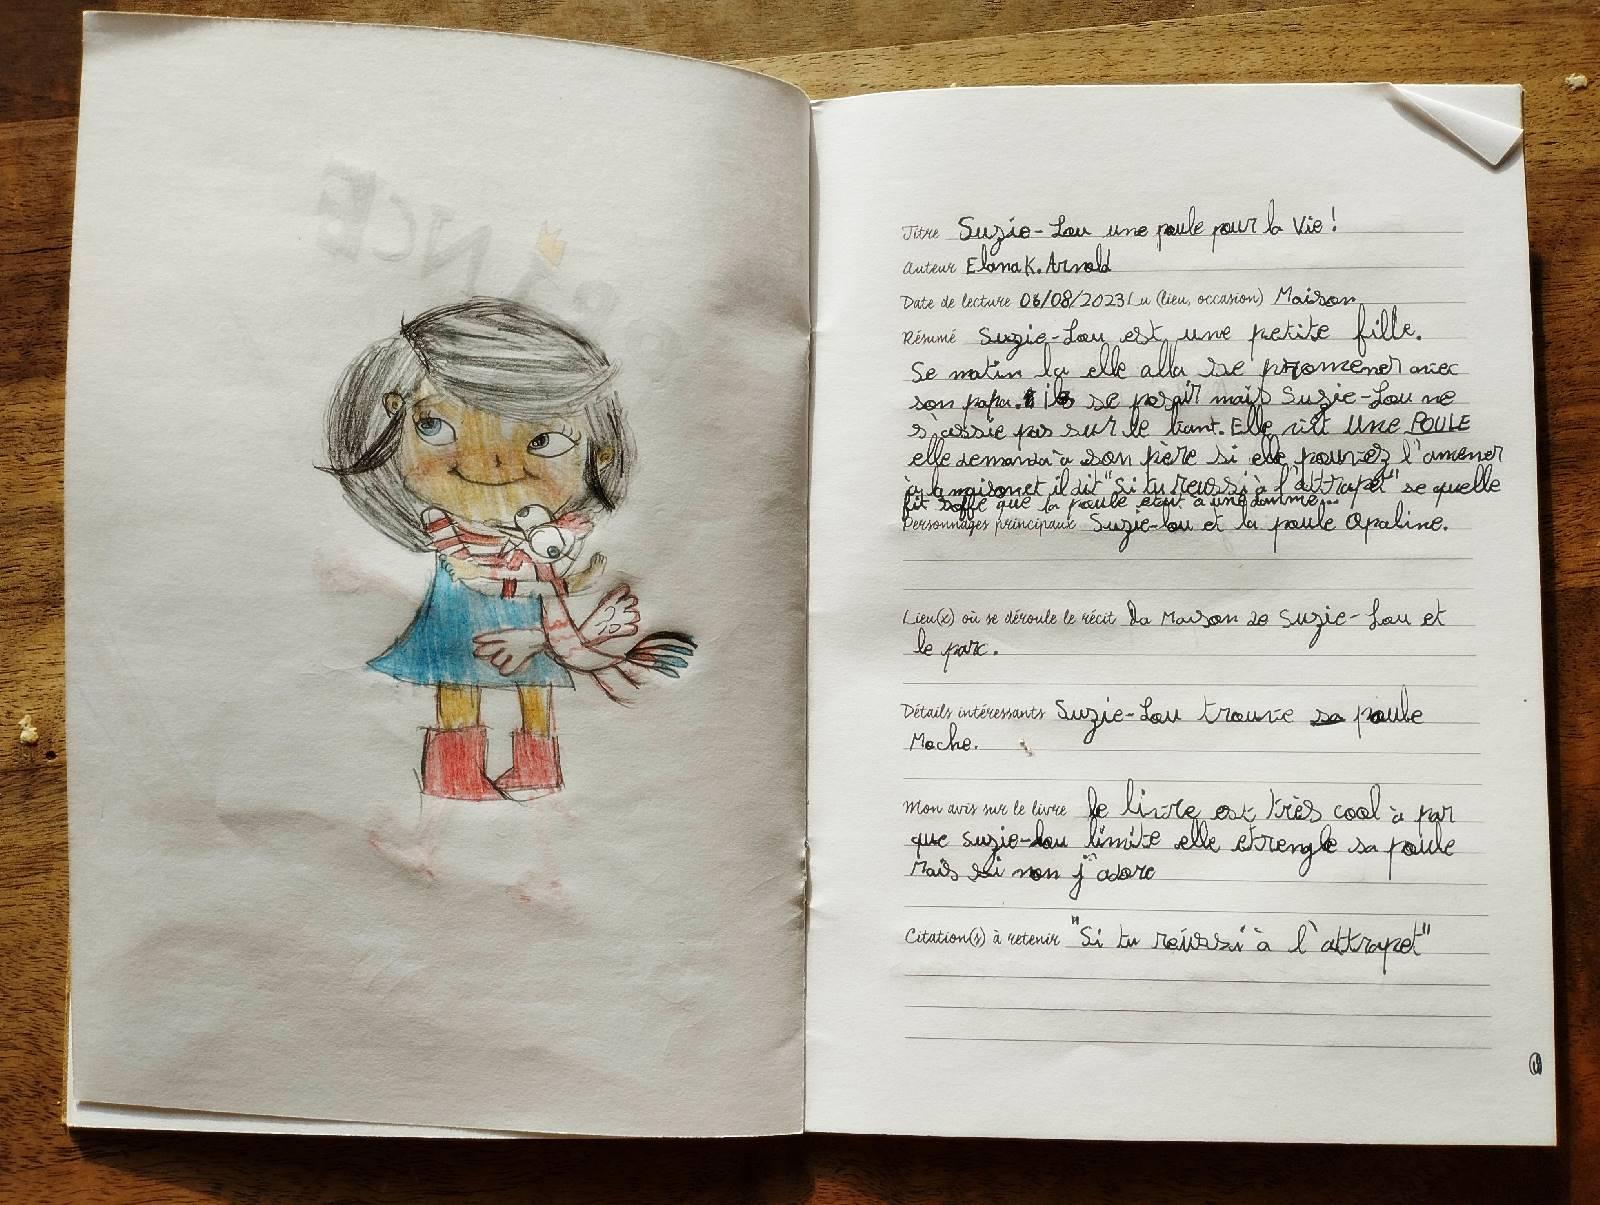 NCE
Titre Suzie-Lou une poule pour la Vie !
Auteur Elana K. Arnold
Date de lecture 06/08/2023 Lu (lieu, occasion) Maison
Résumé Suzie-Lou est une petite fille.
Se matin la elle alla se promener avec
son papa. ils se posair mais Suzie-Lou ne
s'assie pas sur le bant. Elle vit UNE POULE
elle demanda à son père si elle pouvez l'amener
à la maison et il dit "Si tu reussi à l'attrapet" se quelle
fit soffe que la poule etait à une damme...
Personnages principaux Suzie-lou et la poule Opaline.
Lieu(x) où se déroule le récit La Maison de Suzie-Lou et
le parc.
Détails intéressants Suzie-Lou trouve sa poule
Moche.
Mon avis sur le livre le livre est très cool à par
que Suzie-Lou limite elle etrengle sa poule
Mais si non j'adore
Citation(s) à retenir "Si tu réussi à l'attrapet"